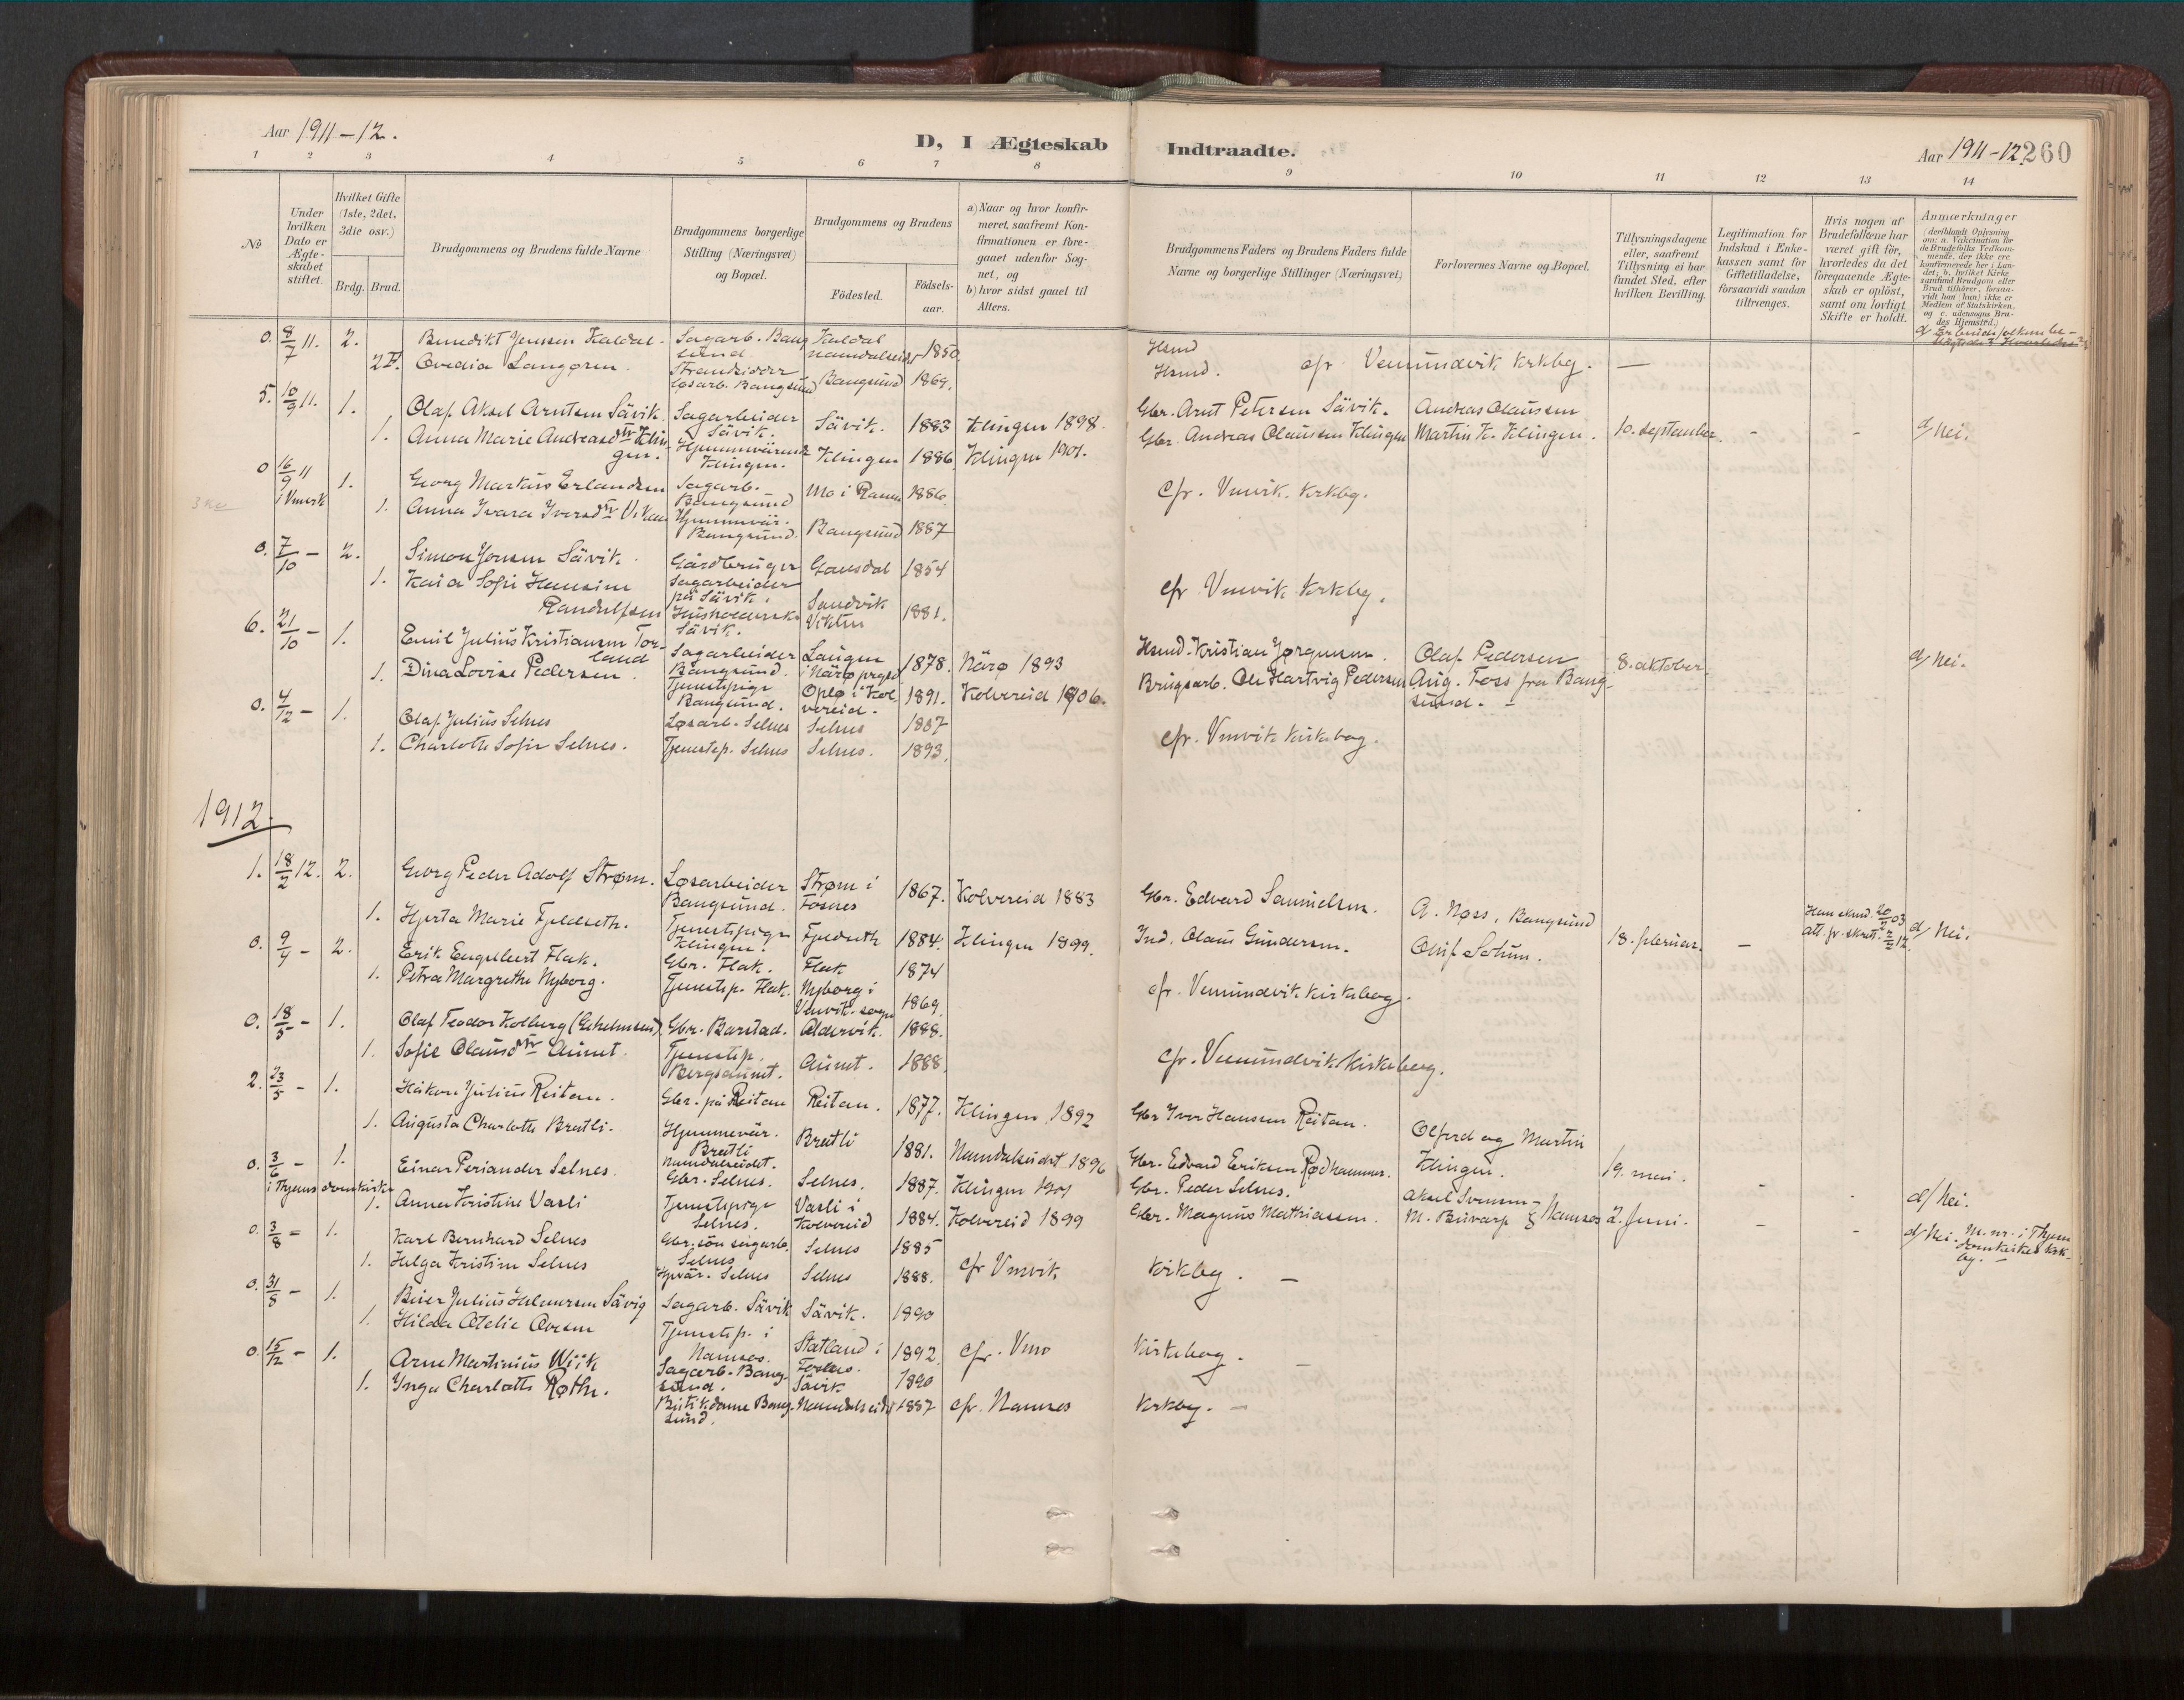 Aar 1911-12.
D, I Ægteskab Indtraadte.
Aar 1911-12. 260
1 2 3 4 5 6 7 8 9 10 11 12 13 14
№
Under hvilken Dato er Ægteskabet stiftet.
Hvilket Gifte (1ste, 2det, 3die osv.)
Brdg. Brud.
Brudgommens og Brudens fulde Navne
Brudgommens borgerlige Stilling (Næringsvei) og Bopæl.
Brudgommens og Brudens
Fødested.
Fødselsaar.
a) Naar og hvor konfirmeret, saafremt Konfirmationen er foregaaet udenfor Sognet, og
b) hvor sidst gaaet til Alters.
Brudgommens Faders og Brudens Faders fulde Navne og borgerlige Stillinger (Næringsvei)
Forlovernes Navne og Bopæl.
Tillysningsdagene eller, saafremt Tillysning ei har fundet Sted, efter hvilken Bevilling.
Legitimation for Indskud i Enkekassen samt for Giftetilladelse, forsaavidt saadan tiltrænges.
Hvis nogen af Brudefolkene har været gift før, hvorledes da det foregaaende Ægteskab er opløst, samt om lovligt Skifte er holdt.
Anmærkninger
(deriblandt Oplysning om: a. Vakcination for de Brudefolks Vedkommende, der ikke ere konfirmerede her i Landet; b. hvilket Kirkesamfund Brudgom eller Brud tilhører, forsaavidt han (hun) ikke er Medlem af Statskirken, og c. udensogns Brudes Hjemsted.)
0. 8/7 11. 2. Benedikt Jensen Kaldal. Sagarb. Bangsund Kaldal Namdalseidet 1850. Hsmd
Ovedia Langøren. Strandsidder Løsarb. Bangsund Bangsund 1869. Hsmd. cfr Vemundvik Krkbg. —
5. 10/9 11. 1. Olaf Aksel Arntsen Sävik. Sagarbeider Sävik. Sävik. 1883 Klingen 1898. Gbr. Arnt Petersen Sävik. Andreas Olaussen
1. Anna Marie Andreasdtr Klingen. Hjemmeværende Klingen. Klingen 1886 Klingen 1901. Gbr. Andreas Olaussen Klingen Martin K. Klingen. 10. september. - - d/ Nei.
0 16/9 11 i Vmvik 1. Georg Markus Erlandsen Sagarb. Bangsund Mo i Ranen 1886 cfr. Vmvik. Krkbg.
1. Anna Ivara Iversdtr Viken Hjemmevär. Bangsund. Bangsund 1887
0. 7/10 — 2. Simon Jonsen Sävik. Gårdbruger Sagarbeider på Sävik. Gausdal 1854
1. Kaia Sofie Hansine Randulfsen Husholderske Sävik. Sandvik Vikten 1881. cfr Vmvik Krkbg.
6. 21/10 — 1. Emil Julius Kristiansen Torland Sagarbeider Bangsund. Laugen i Nærø prgjd 1878. Närø 1893 Hsmd. Kristian Jørgensen. Olaf Pedersen
1. Dina Lovise Pedersen. Tjenestepige Bangsund. Oplø i Kolvereid. 1891. Kolvereid 1906. Brugsarb. Ole Hartvig Pedersen Aug. Foss fra Bangsund. — 8. oktober. d/ Nei.
0. 4/12 — 1. Olaf Julius Selnes Løsarb. Selnes Selnes 1887
1. Charlotte Sofie Selnes. Tjenestep. Selnes Selnes. 1893. cfr. Vmvik Kirkebog.
1912.
1. 18/2 12. 2. Georg Peder Adolf Strøm. Løsarbeider Bangsund. Strøm i Fosnes 1867. Kolvereid 1883 Gbr. Edvard Samuelsen. A. Nøss, Bangsund
1. Hjerta Marie Fjeldseth. Tjenestepige Klingen. Fjeldseth 1884. Klingen 1899. Ind. Olaus Gundersen. 18. februar. — d/ Nei.
0. 9/4 — 2. Erik Engelbert Flak. Gbr. Flak. Flak 1874
1. Petra Margrethe Nyborg. Tjenestep. Flak. Nyborg i Vmvik. sogn 1869. cfr. Vemundvik Kirkebog.
0. 18/5 — 1. Olaf Teodor Kolberg Gbr. Barstad. Aldervik. 1888.
1. Sofie Olausdtr Aunet. Tjenestep. Bergsaunet. Aunet. 1888. cfr. Vemundvik Kirkebog.
2. 23/5 — 1. Håkon Julius Reitan. Gbr. på Reitan Reitan. 1877. Klingen 1892 Gbr Iver Hanssen Reitan. Olferd og Martin Klingen.
1. Augusta Charlotte Bratli. Hjemmevär. Bratli Namdalseidet. Bratli 1881. Namdalseidet 1896 Gbr. Edvard Eriksen Rødhammer. 19. mai. - - d/ Nei.
0. 3/6 — i Thjems domkirke 1. Einar Periander Selnes. Gbr. Selnes. Selnes. 1887. Klingen 1901 Gbr. Peder Selnes. Aksel Svensen —
1. Anna Kristine Vasli Tjenestepige Selnes. Vasli i Kolvereid 1884. Kolvereid 1899 Gbr. Magnus Mathiasen. 2. Juni. - - d/ Nei. M. nr. i Thjem domkirkes krkbg. —
0. 3/8 — 1. Karl Bernhard Selnes Gbr. søn sagarb. Selnes Selnes 1885
1. Helga Kristine Selnes Hjvär. Selnes Selnes 1888. cfr Vmvik Kirkbg. —
0. 31/8 — 1. Julius Sävig Sagarb. Sävik Sävik. 1890
1. Hilda Otelie Ovesen Tjenestep. i Namsos. Statland i Fosnes. 1892. cfr. Vmv Kirkebog. —
0. 15/12 — 1. Arne Martinius Wiik Sagarb. Bangsund. Sävik 1890
1. Inga Charlotte Røthe. Butikdame Bangsund. Namdalseidet 1887 cfr. Namsos Krkbg. —